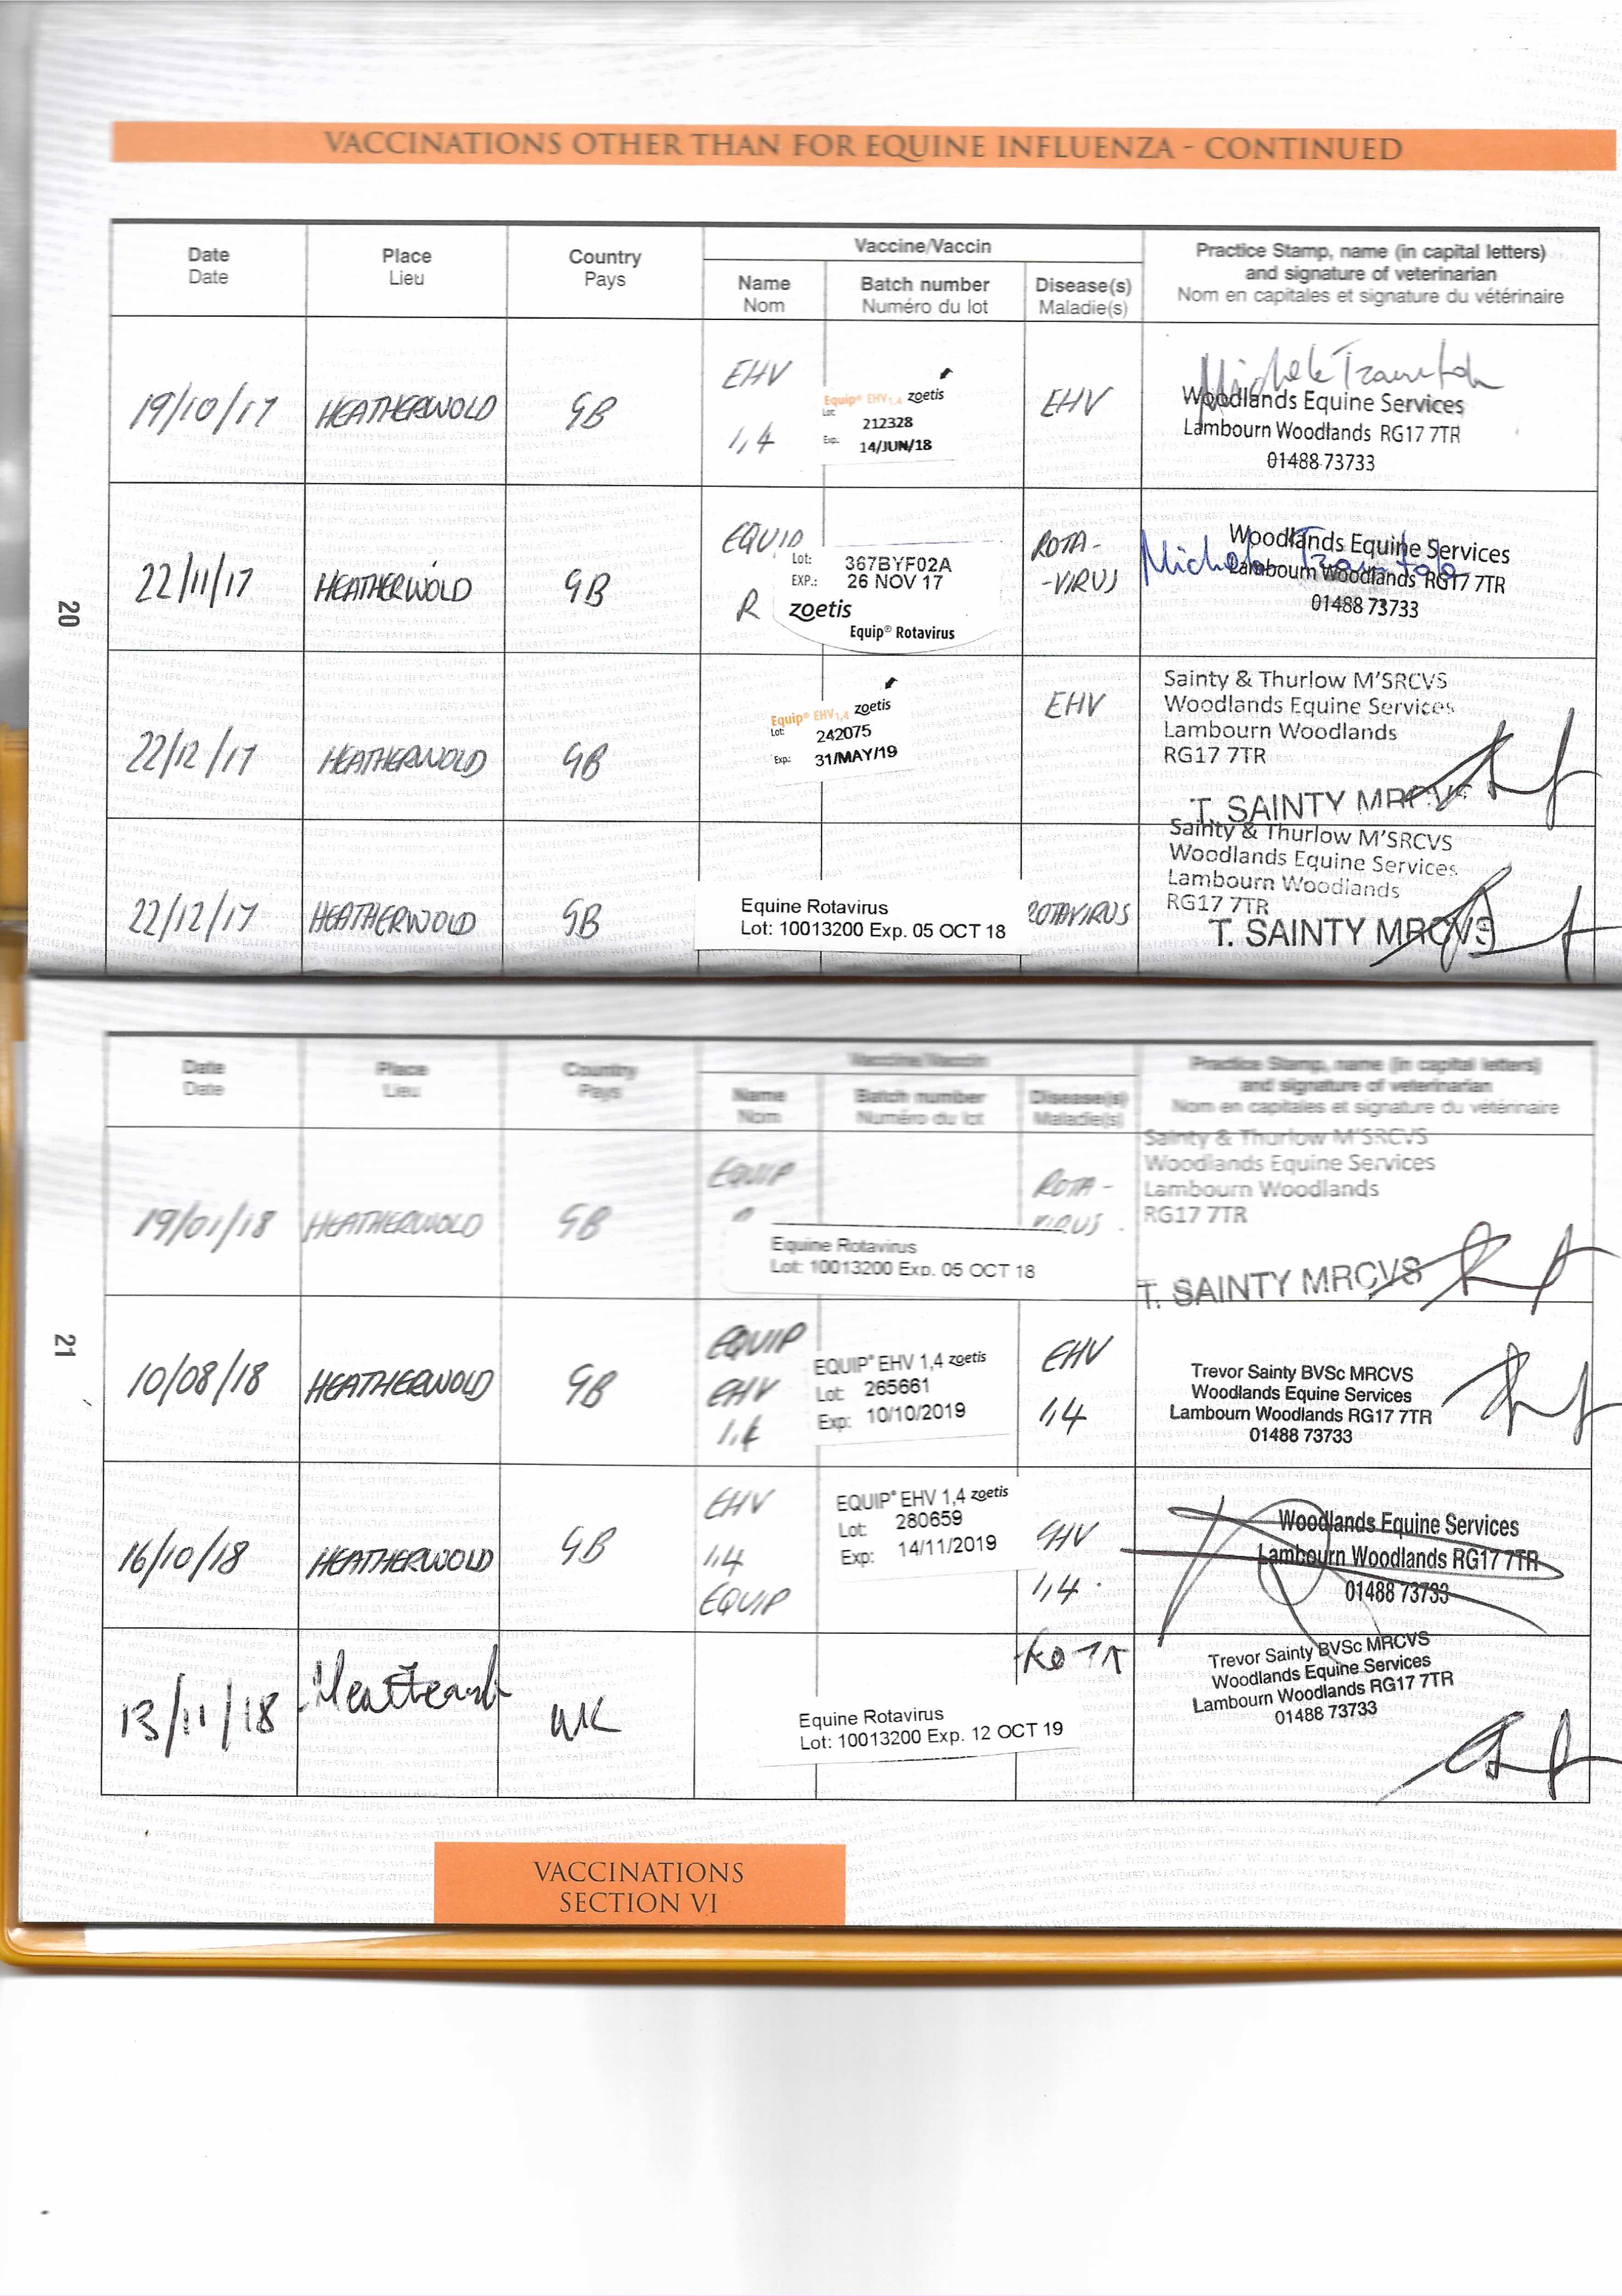 VACCINATIONS OTHER THAN FOR EQUINE INFLUENZA - CONTINUED
Date
Date
Place
Lieu
Country
Pays
Vaccine/Vaccin
Name
Nom
Batch number
Numéro du lot
Disease(s)
Maladie(s)
Practice Stamp, name (in capital letters)
and signature of veterinarian
Nom en capitales et signature du vétérinaire
19/10/17 HEATHERWOLD GB
EHV
1,4
Equip® EHV1,4 zoetis
Lot: 212328
Exp: 14/JUN/18
EHV
Michele
Woodlands Equine Services
Lambourn Woodlands RG17 7TR
01488 73733
22/11/17 HEATHERWOLD GB
EQUIP
R
Lot: 367BYF02A
EXP.: 26 NOV 17
zoetis
Equip® Rotavirus
ROTA-
-VIRUS
Woodlands Equine Services
Lambourn Woodlands RG17 7TR
01488 73733
22/12/17 HEATHERWOLD GB
Equip® EHV1,4 zoetis
Lot: 242075
Exp: 31/MAY/19
EHV
Sainty & Thurlow M'SRCVS
Woodlands Equine Services
Lambourn Woodlands
RG17 7TR
T. SAINTY MRCVS
22/12/17 HEATHERWOLD GB
Equine Rotavirus
Lot: 10013200 Exp. 05 OCT 18
ROTAVIRUS
Sainty & Thurlow M'SRCVS
Woodlands Equine Services
Lambourn Woodlands
RG17 7TR
T. SAINTY MRCVS
20
Date
Date
Place
Lieu
Country
Pays
Vaccine/Vaccin
Name
Nom
Batch number
Numéro du lot
Disease(s)
Maladie(s)
Practice Stamp, name (in capital letters)
and signature of veterinarian
Nom en capitales et signature du vétérinaire
19/01/18 HEATHERWOLD GB
EQUIP
Equine Rotavirus
Lot: 10013200 Exp. 05 OCT 18
ROTA-
VIRUS
Sainty & Thurlow M'SRCVS
Woodlands Equine Services
Lambourn Woodlands
RG17 7TR
T. SAINTY MRCVS
10/08/18 HEATHERWOLD GB
EQUIP
EHV
1,4
EQUIP® EHV 1,4 zoetis
Lot: 265661
Exp: 10/10/2019
EHV
1,4
Trevor Sainty BVSc MRCVS
Woodlands Equine Services
Lambourn Woodlands RG17 7TR
01488 73733
16/10/18 HEATHERWOLD GB
EHV
1,4
EQUIP
EQUIP® EHV 1,4 zoetis
Lot: 280659
Exp: 14/11/2019
EHV
1,4
Woodlands Equine Services
Lambourn Woodlands RG17 7TR
01488 73733
13/11/18 UK
Equine Rotavirus
Lot: 10013200 Exp. 12 OCT 19
Trevor Sainty BVSc MRCVS
Woodlands Equine Services
Lambourn Woodlands RG17 7TR
01488 73733
21
VACCINATIONS
SECTION VI